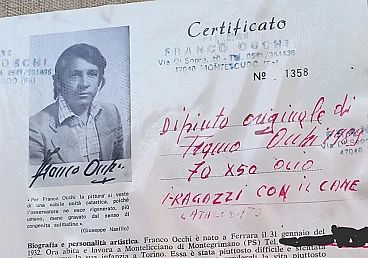 Certificato
FRANCO OCCHI
Via Di Sopra, 10 - TL. 0541/984438
47040 MONTESCUDO (FO)
OCCHI
TL. 0541/984438
N° 1358
Dipinto originale di
Franco Occhi
70 x 50 OLIO
I RAGAZZI CON IL CANE
Franco Occhi
47040
« Per Franco Occhi la pittura si veste
di una nobile unità catartica, poiché
l'osservatore ne esce rigenerato, più
umano, meno gravato dal senso di
congenita solitudine ».
(Giuseppe Nasillo)
Biografia e personalità artistica. Franco Occhi è nato a Ferrara il 31 gennaio del
1932. Ora abita e lavora a Montelicciano di Montegrimano (PS) Tel.
la sua infanzia a Torino. Essa è stata piuttosto difficile e stentata